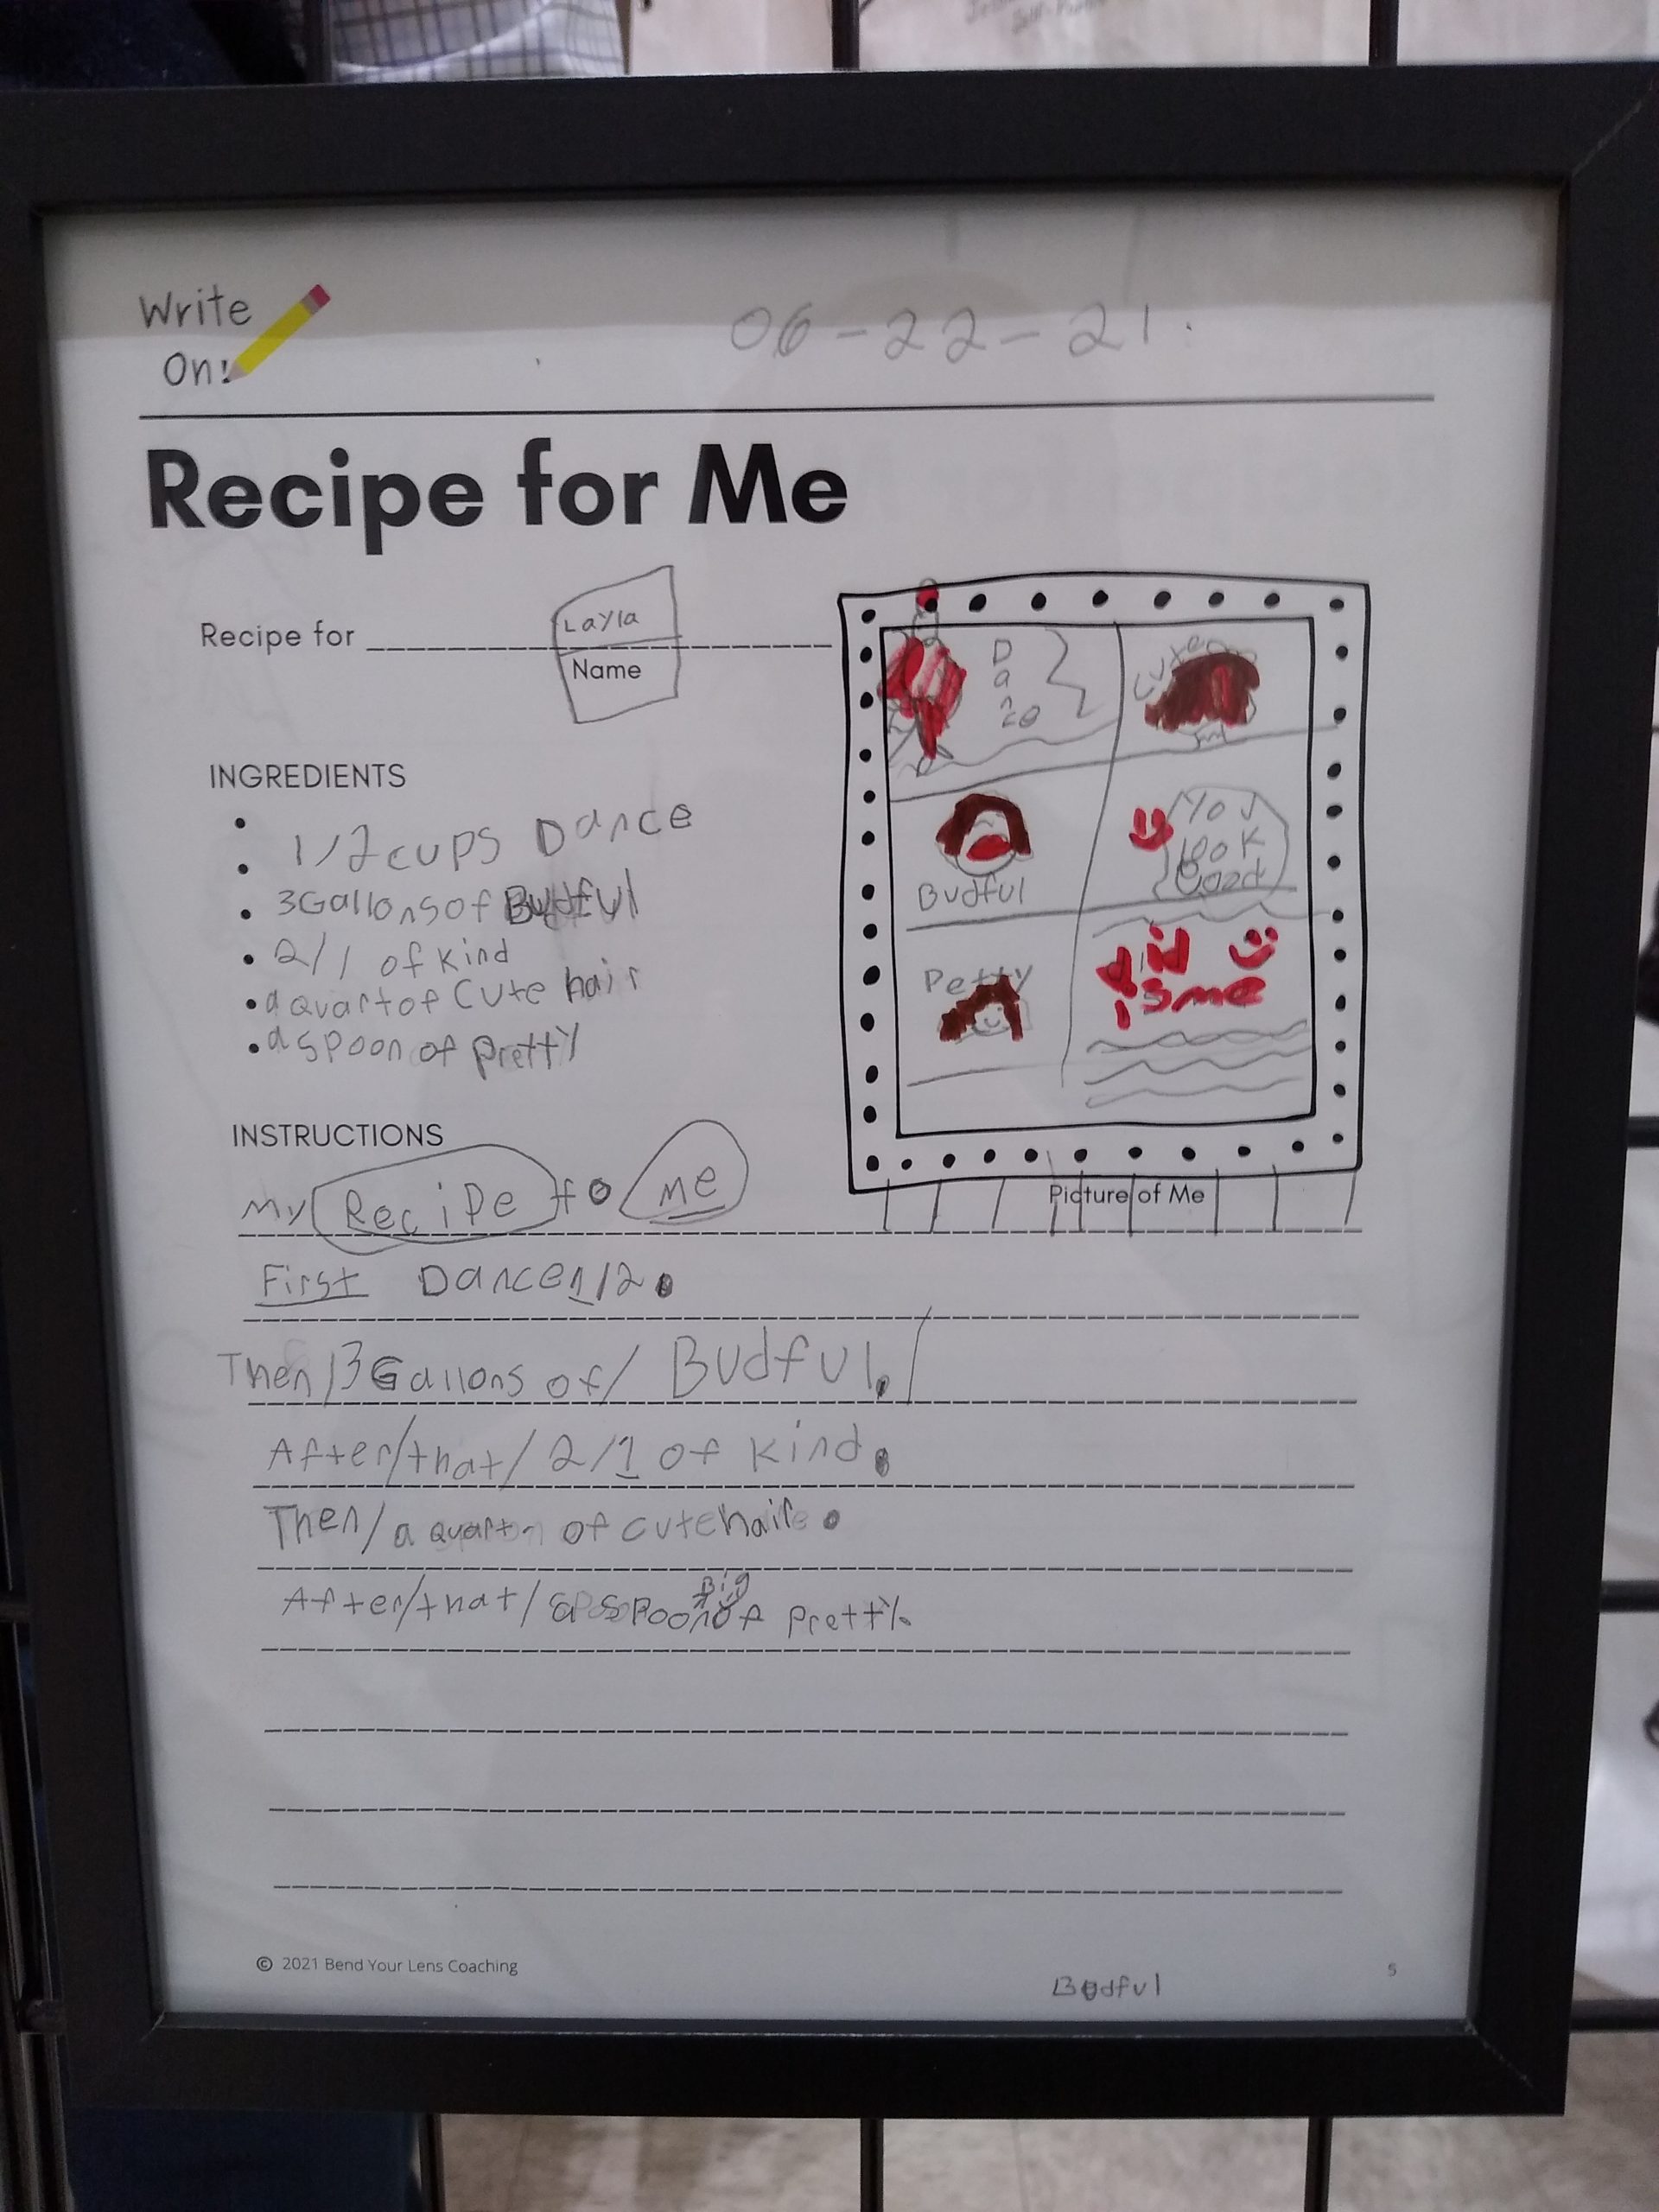 Write
On!
06-22-21.
Recipe for Me
Recipe for
Layla
Name
INGREDIENTS
1/2 cups Dance
3 Gallons of Budful
2/1 of kind
a quart of Cute hair
a spoon of pretty
Da
Budful
YoU
look
Good
Petty
is me
Picture of Me
INSTRUCTIONS
My Recipe fo me
First Dance 1/2.
Then/3 Gallons of/ Budful./
After/that/2/1 of kind.
Then/a quart of cute hair.
After/that/a spoon of pretty.
Big
© 2021 Bend Your Lens Coaching
5
Budful